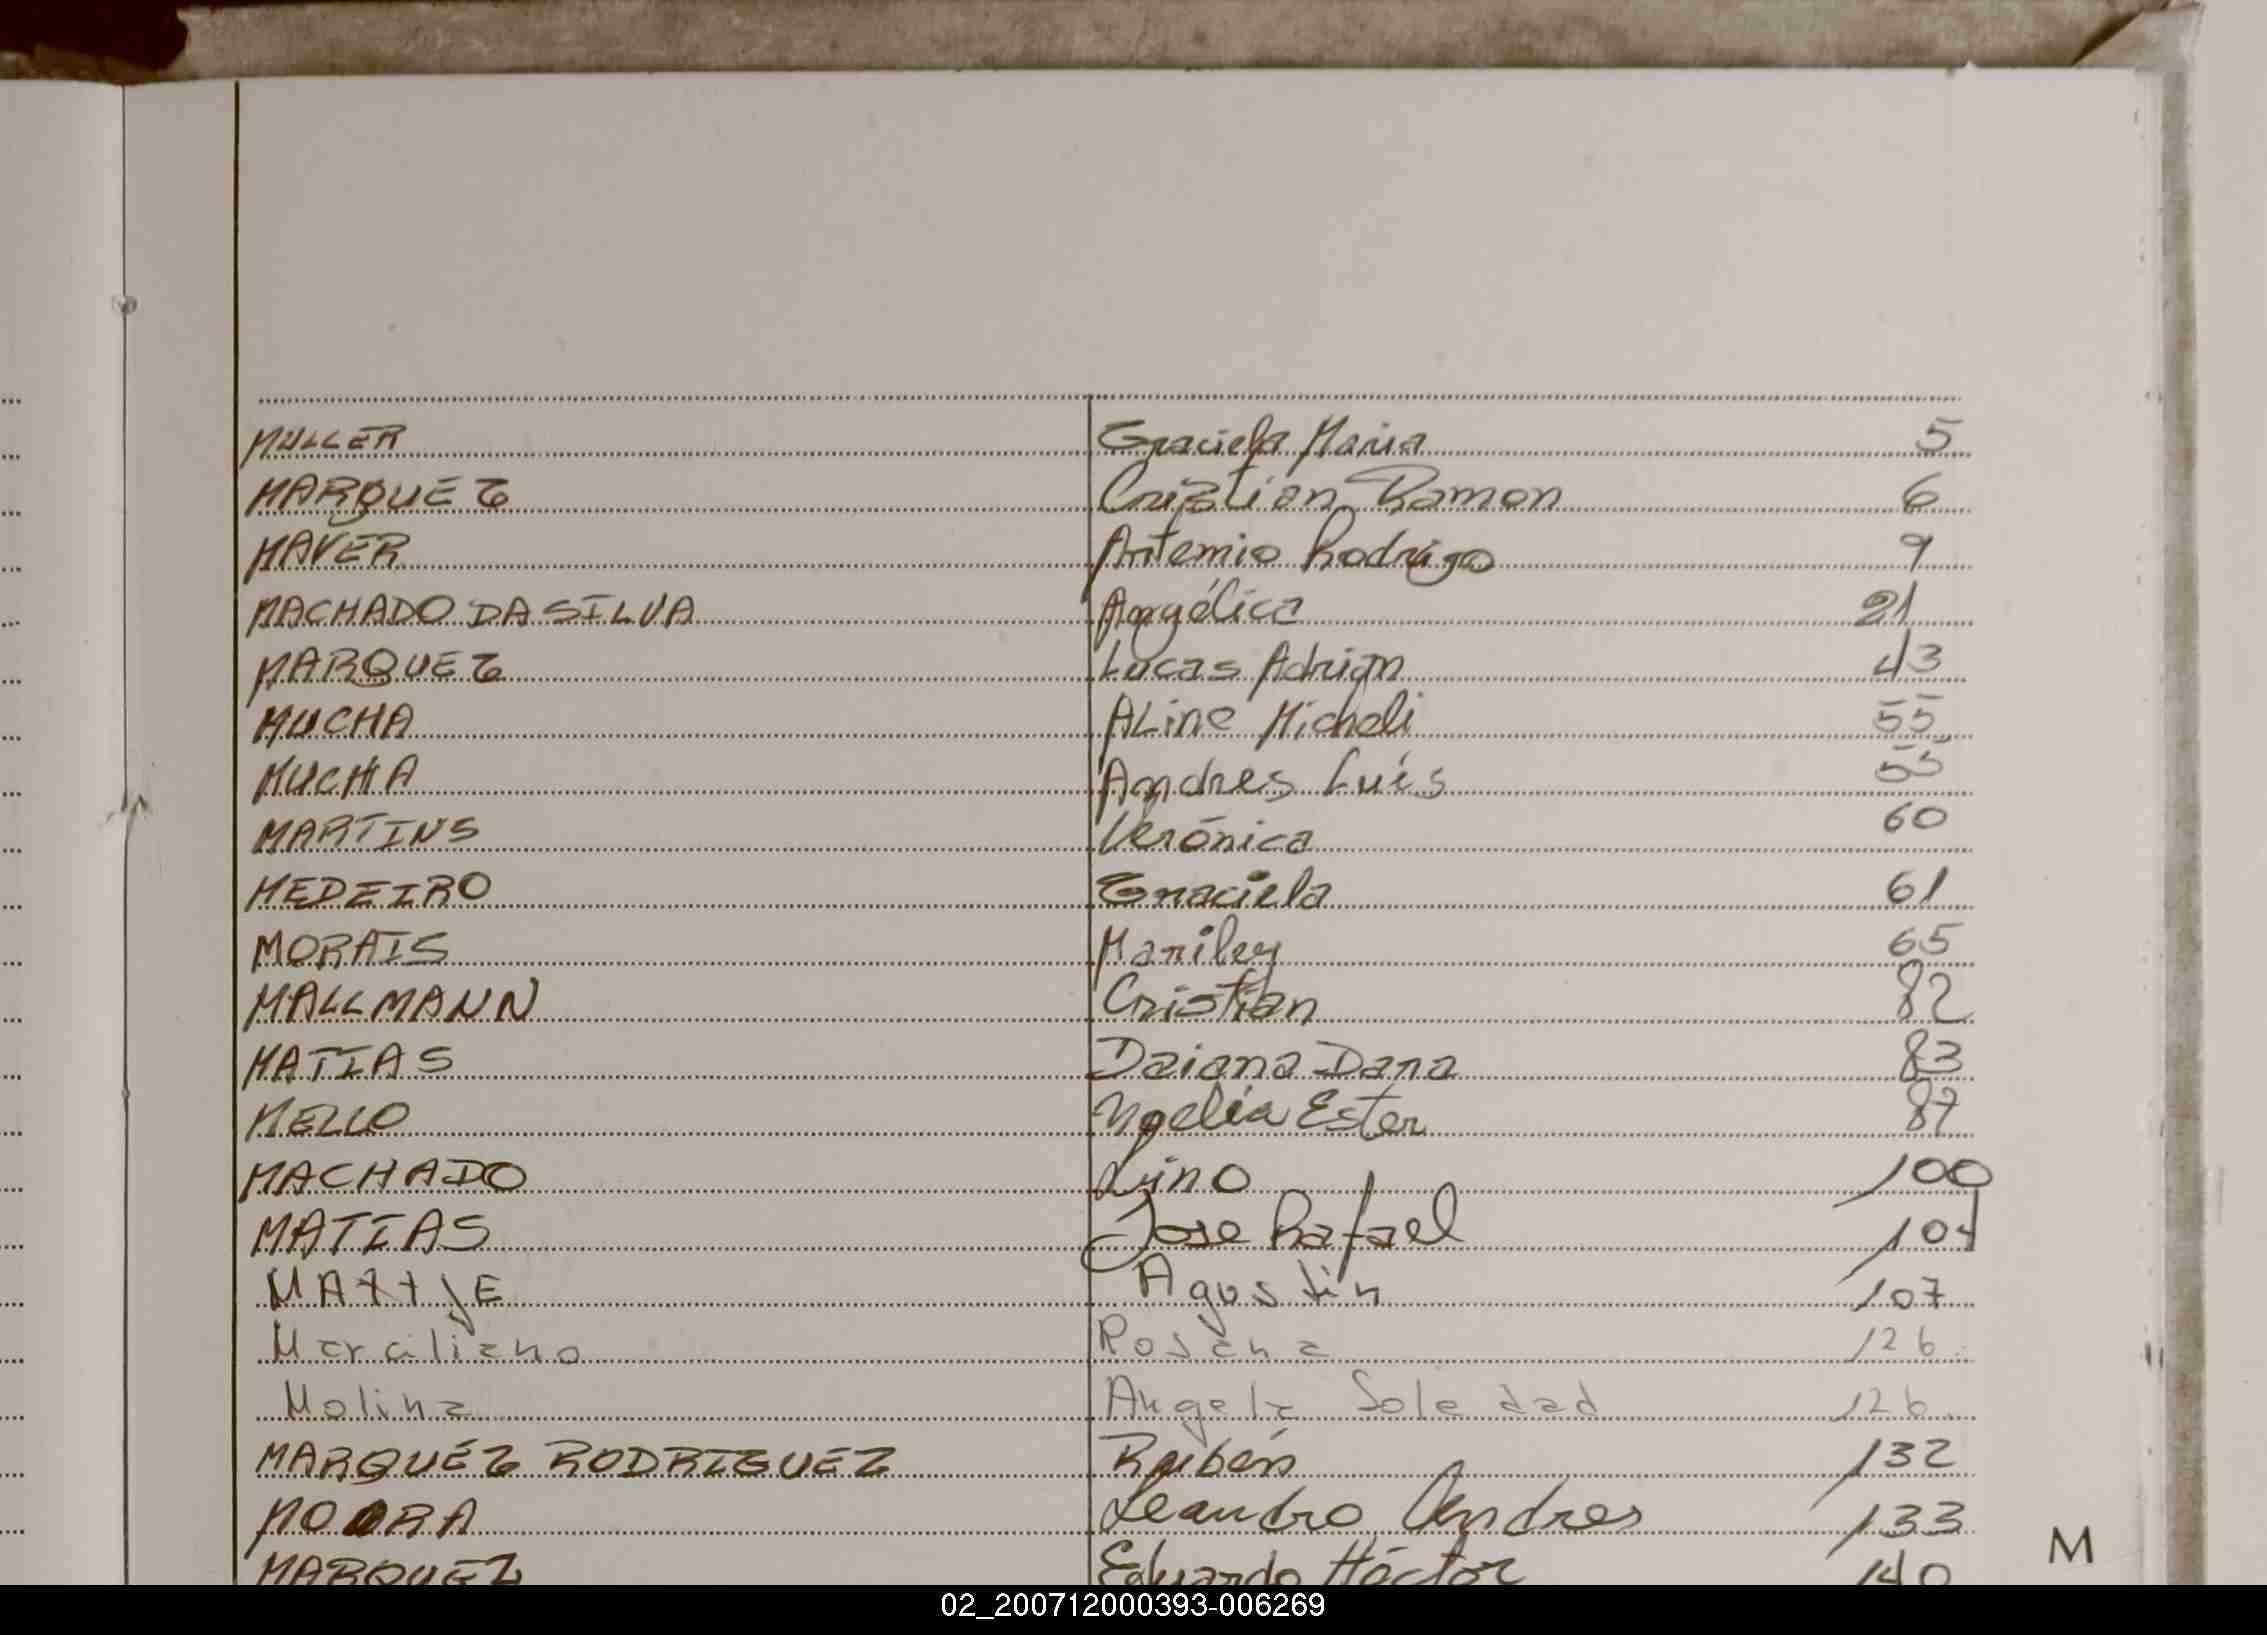 MULLER Graciela Maria 5
MARQUEZ Cristian Ramon 6
MAVER Artemio Rodrigo 9
MACHADO DA SILVA Angélica 21
MARQUEZ Lucas Adrian 43
MUCHA ALine Micheli 55
MUCHA Andres Luis 55
MARTINS Verónica 60
MEDEIRO Graciela 61
MORAIS Mariley 65
MALLMANN Cristian 82
MATIAS Daiana Dana 83
MELLO Noelia Ester 87
MACHADO Lino 100
MATIAS Jose Rafael 104
MATTJE Agustin 107
Marciliano Rosana 126
Molina Angela Soledad 126
MARQUÉZ RODRIGUEZ Rubén 132
MOORA Leandro Andres 133
MARQUEZ Eduardo Héctor 140
M
02_200712000393-006269